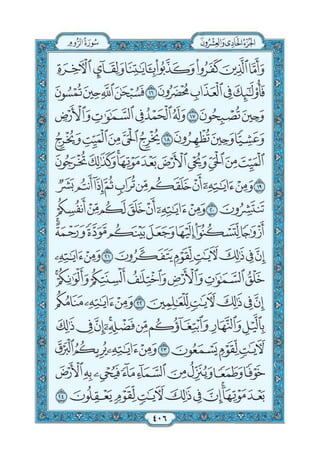 الجزء الحادي والعشرون سورة الروم
وَأَمَّا ٱلَّذِينَ كَفَرُوا۟ وَكَذَّبُوا۟ بِـَٔايَٰتِنَا وَلِقَآئِ ٱلْـَٔاخِرَةِ
فَأُو۟لَٰٓئِكَ فِى ٱلْعَذَابِ مُحْضَرُونَ ١٦ فَسُبْحَٰنَ ٱللَّهِ حِينَ تُمْسُونَ
وَحِينَ تُصْبِحُونَ ١٧ وَلَهُ ٱلْحَمْدُ فِى ٱلسَّمَٰوَٰتِ وَٱلْأَرْضِ
وَعَشِيًّا وَحِينَ تُظْهِرُونَ ١٨ يُخْرِجُ ٱلْحَىَّ مِنَ ٱلْمَيِّتِ وَيُخْرِجُ
ٱلْمَيِّتَ مِنَ ٱلْحَىِّ وَيُحْىِ ٱلْأَرْضَ بَعْدَ مَوْتِهَا وَكَذَٰلِكَ تُخْرَجُونَ
١٩ وَمِنْ ءَايَٰتِهِۦٓ أَنْ خَلَقَكُم مِّن تُرَابٍ ثُمَّ إِذَآ أَنتُم بَشَرٌ
تَنتَشِرُونَ ٢٠ وَمِنْ ءَايَٰتِهِۦٓ أَنْ خَلَقَ لَكُم مِّنْ أَنفُسِكُمْ
أَزْوَٰجًا لِّتَسْكُنُوٓا۟ إِلَيْهَا وَجَعَلَ بَيْنَكُم مَّوَدَّةً وَرَحْمَةً
إِنَّ فِى ذَٰلِكَ لَـَٔايَٰتٍ لِّقَوْمٍ يَتَفَكَّرُونَ ٢١ وَمِنْ ءَايَٰتِهِۦ
خَلْقُ ٱلسَّمَٰوَٰتِ وَٱلْأَرْضِ وَٱخْتِلَٰفُ أَلْسِنَتِكُمْ وَأَلْوَٰنِكُمْ
إِنَّ فِى ذَٰلِكَ لَـَٔايَٰتٍ لِّلْعَٰلِمِينَ ٢٢ وَمِنْ ءَايَٰتِهِۦ مَنَامُكُم
بِٱلَّيْلِ وَٱلنَّهَارِ وَٱبْتِغَآؤُكُم مِّن فَضْلِهِۦٓ إِنَّ فِى ذَٰلِكَ
لَـَٔايَٰتٍ لِّقَوْمٍ يَسْمَعُونَ ٢٣ وَمِنْ ءَايَٰتِهِۦ يُرِيكُمُ ٱلْبَرْقَ
خَوْفًا وَطَمَعًا وَيُنَزِّلُ مِنَ ٱلسَّمَآءِ مَآءً فَيُحْىِۦ بِهِ ٱلْأَرْضَ
بَعْدَ مَوْتِهَآ إِنَّ فِى ذَٰلِكَ لَـَٔايَٰتٍ لِّقَوْمٍ يَعْقِلُونَ ٢٤
٤٠٦